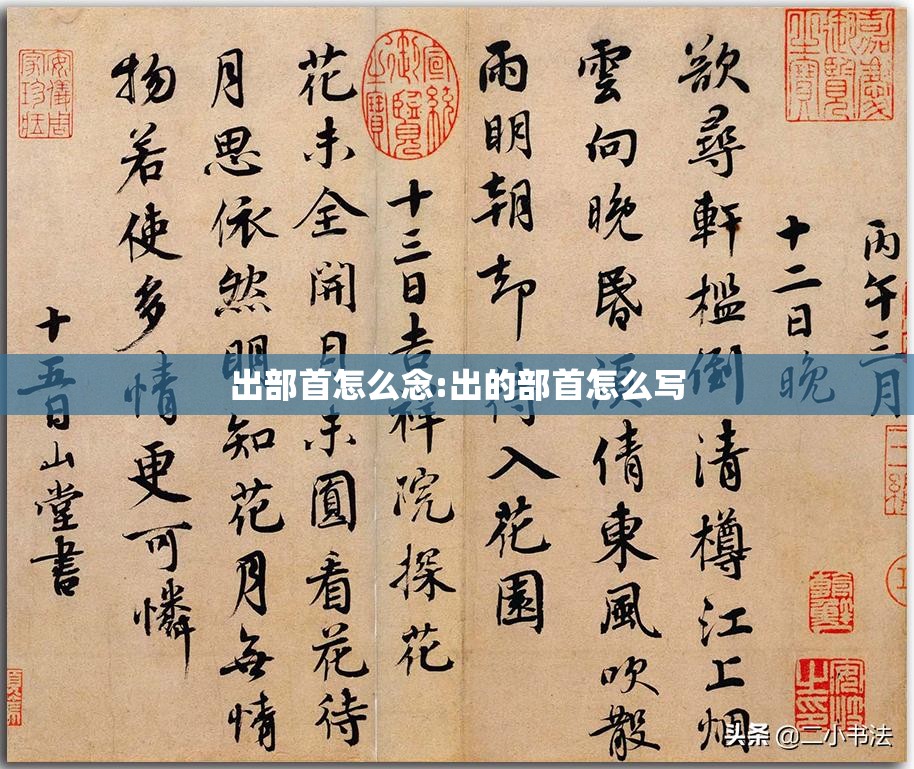 丙午三月
十二日晚
欲尋軒檻倒清樽江上烟
雲向晚昏須倩東風吹散
雨明朝却待入花園
十三日吉祥院探花
花未全開月未圓看花待
月思依然明知花月無情
物若使多情更可憐
十五日山堂書
嘉慶御覽之寶
宣統御覽之寶
安儀周家珍藏
出部首怎么念:出的部首怎么写
头条 @二小书法